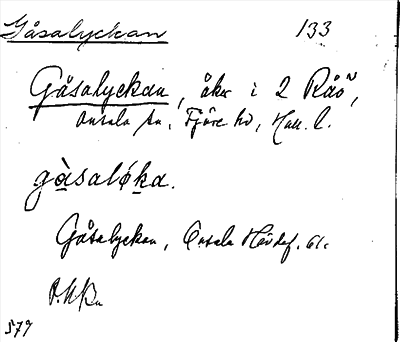 Gåsalyckan 133
Gåsalyckan, åker i 2 Råö,
Onsala sn, Fjäre hd, Hall. l.
gåsalǿka.
Gåsalyckan, Onsala
579